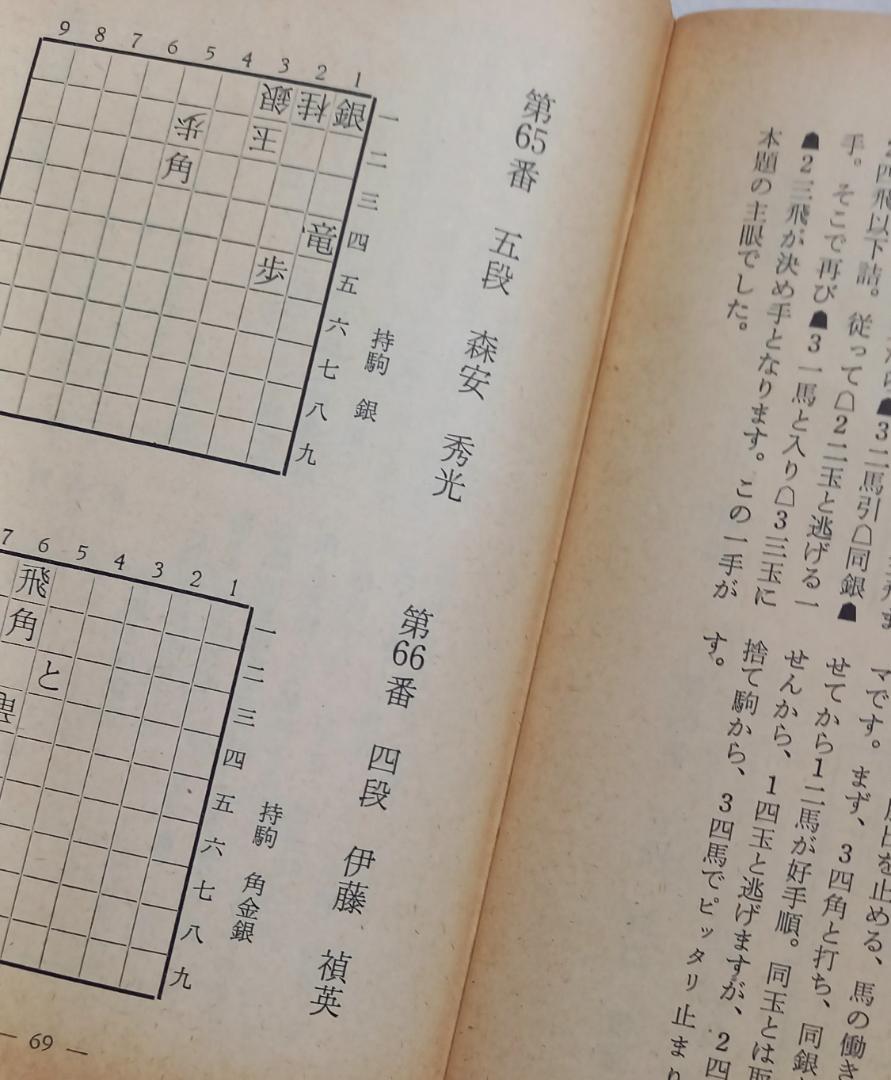 2四飛以下詰。従って☖2二玉と逃げる一
手。そこで再び☗3一馬と入り☖3三玉に
☗2三飛が決め手となります。この一手が
本題の主眼でした。
せてから1二馬が好手順。同玉とは
せんから、1四玉と逃げますが、2四
捨て駒から、3四馬でピッタリ止まり
す。
第65番 五段 森安 秀光
持駒 銀
9 8 7 6 5 4 3 2 1
銀 桂 銀 一
歩 玉 二
角 三
竜 四
歩 五
六
七
八
九
第66番 四段 伊藤 禎英
持駒 角金銀
7 6 5 4 3 2 1
飛 一
角 二
と 三
四
五
六
七
八
九
— 69 —